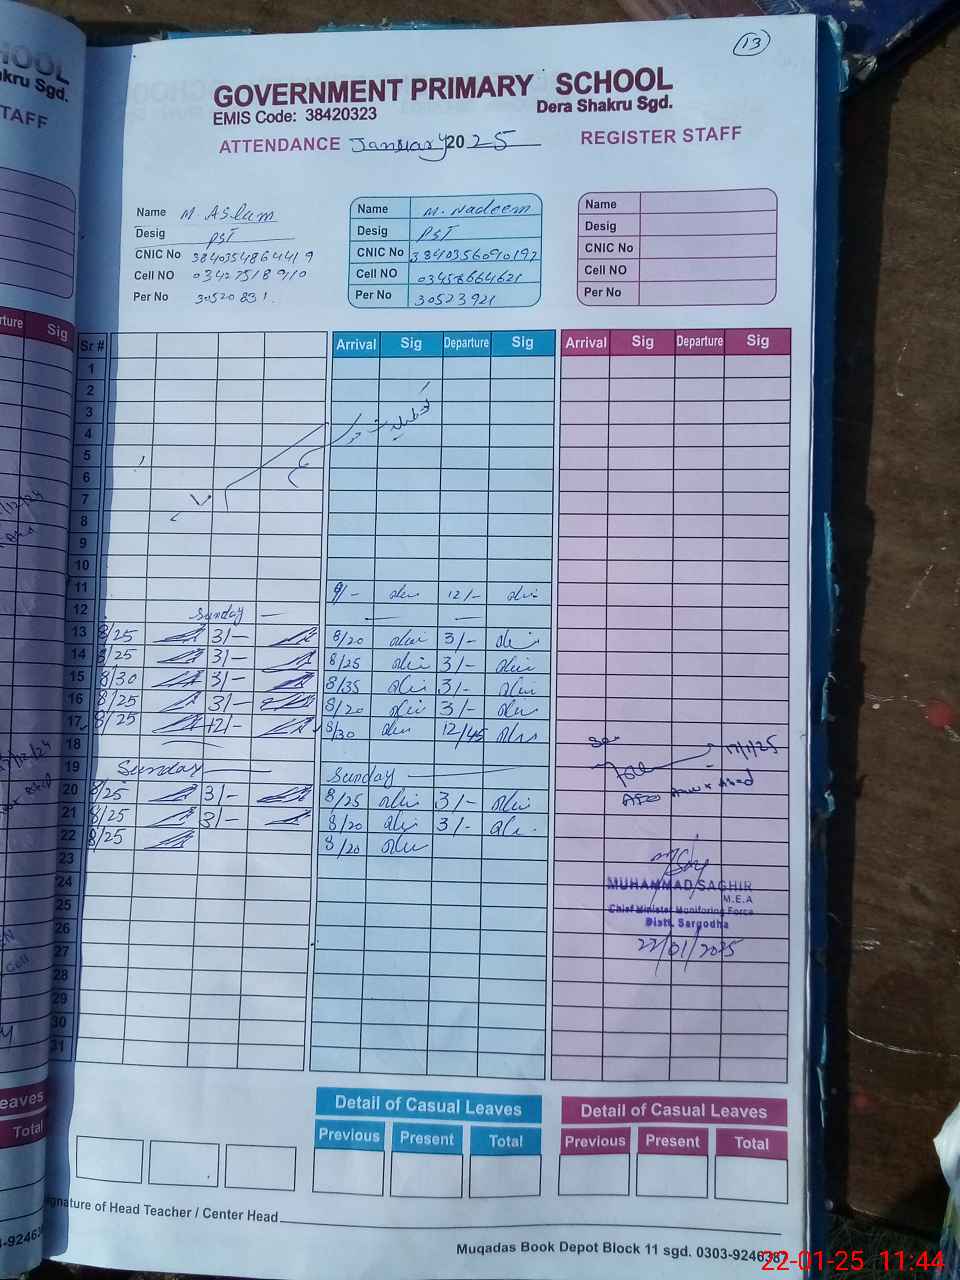 13
GOVERNMENT PRIMARY SCHOOL
EMIS Code: 38420323 Dera Shakru Sgd.
ATTENDANCE January 2025 REGISTER STAFF
HOOL
kru Sgd.
TAFF
Name M Aslam
Desig PST
CNIC No 3840354864419
Cell NO 03427518910
Per No 30520831
Name M. Nadeem
Desig PST
CNIC No
Cell NO 03458664621
Per No 30523921
Name
Desig
CNIC No
Cell NO
Per No
rture Sig
Sr # Arrival Sig Departure Sig Arrival Sig Departure Sig
1
2
3
4
5
6
7
8
9
10
11 8/- 12/-
12 Sunday —
13 8/25 3/- 8/20 3/-
14 8/25 3/- 8/25 3/-
15 8/30 3/- 8/35 3/-
16 8/25 3/- 8/20 3/-
17 8/25 12/- 8/30 12/45
18 17/1/25
19 Sunday Sunday
20 8/25 3/- 8/25 3/-
21 8/25 3/- 8/20 3/-
22 8/25 8/20
23
24 MUHAMMAD SAGHIR
M.E.A
25 Chief Minister Monitoring Force
Distt. Sargodha
26 22/01/2025
27
28
29
30
31
eaves
Total
Detail of Casual Leaves Detail of Casual Leaves
Previous Present Total Previous Present Total
ignature of Head Teacher / Center Head
Muqadas Book Depot Block 11 sgd. 0303-924638
22-01-25 11:44